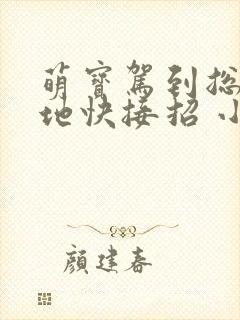 萌寶駕到総
地快接招 小
顏建春